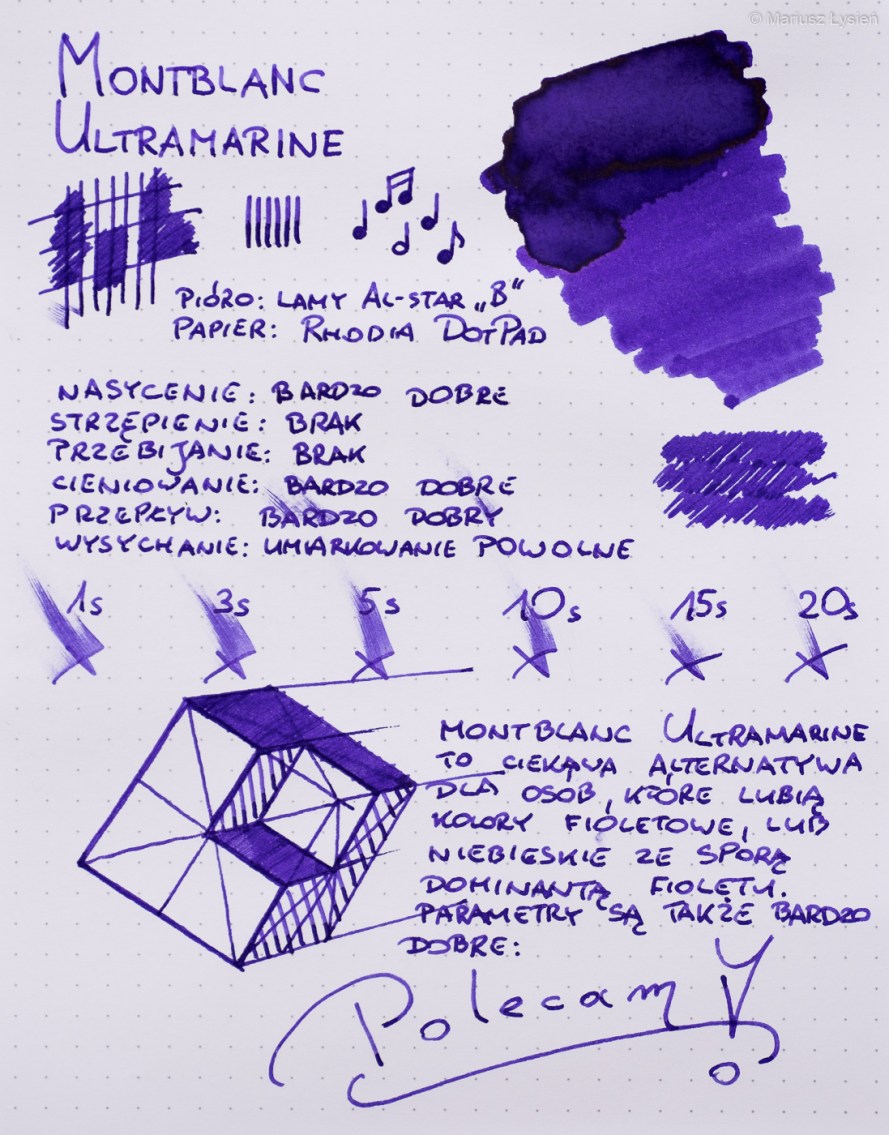 © Mariusz Łysień
MONTBLANC
ULTRAMARINE
PIÓRO: LAMY AL-STAR „B"
PAPIER: RHODIA DOTPAD
NASYCENIE: BARDZO DOBRE
STRZĘPIENIE: BRAK
PRZEBIJANIE: BRAK
CIENIOWANIE: BARDZO DOBRE
PRZEPŁYW: BARDZO DOBRY
WYSYCHANIE: UMIARKOWANIE POWOLNE
1s 3s 5s 10s 15s 20s
MONTBLANC ULTRAMARINE
TO CIEKAWA ALTERNATYWA
DLA OSÓB, KTÓRE LUBIĄ
KOLORY FIOLETOWE, LUB
NIEBIESKIE ZE SPORĄ
DOMINANTĄ FIOLETU.
PARAMETRY SĄ TAKŻE BARDZO
DOBRE:
Polecam!